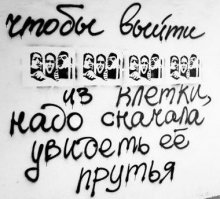 чтобы выйти
из клетки,
надо сначала
увидеть её
прутья